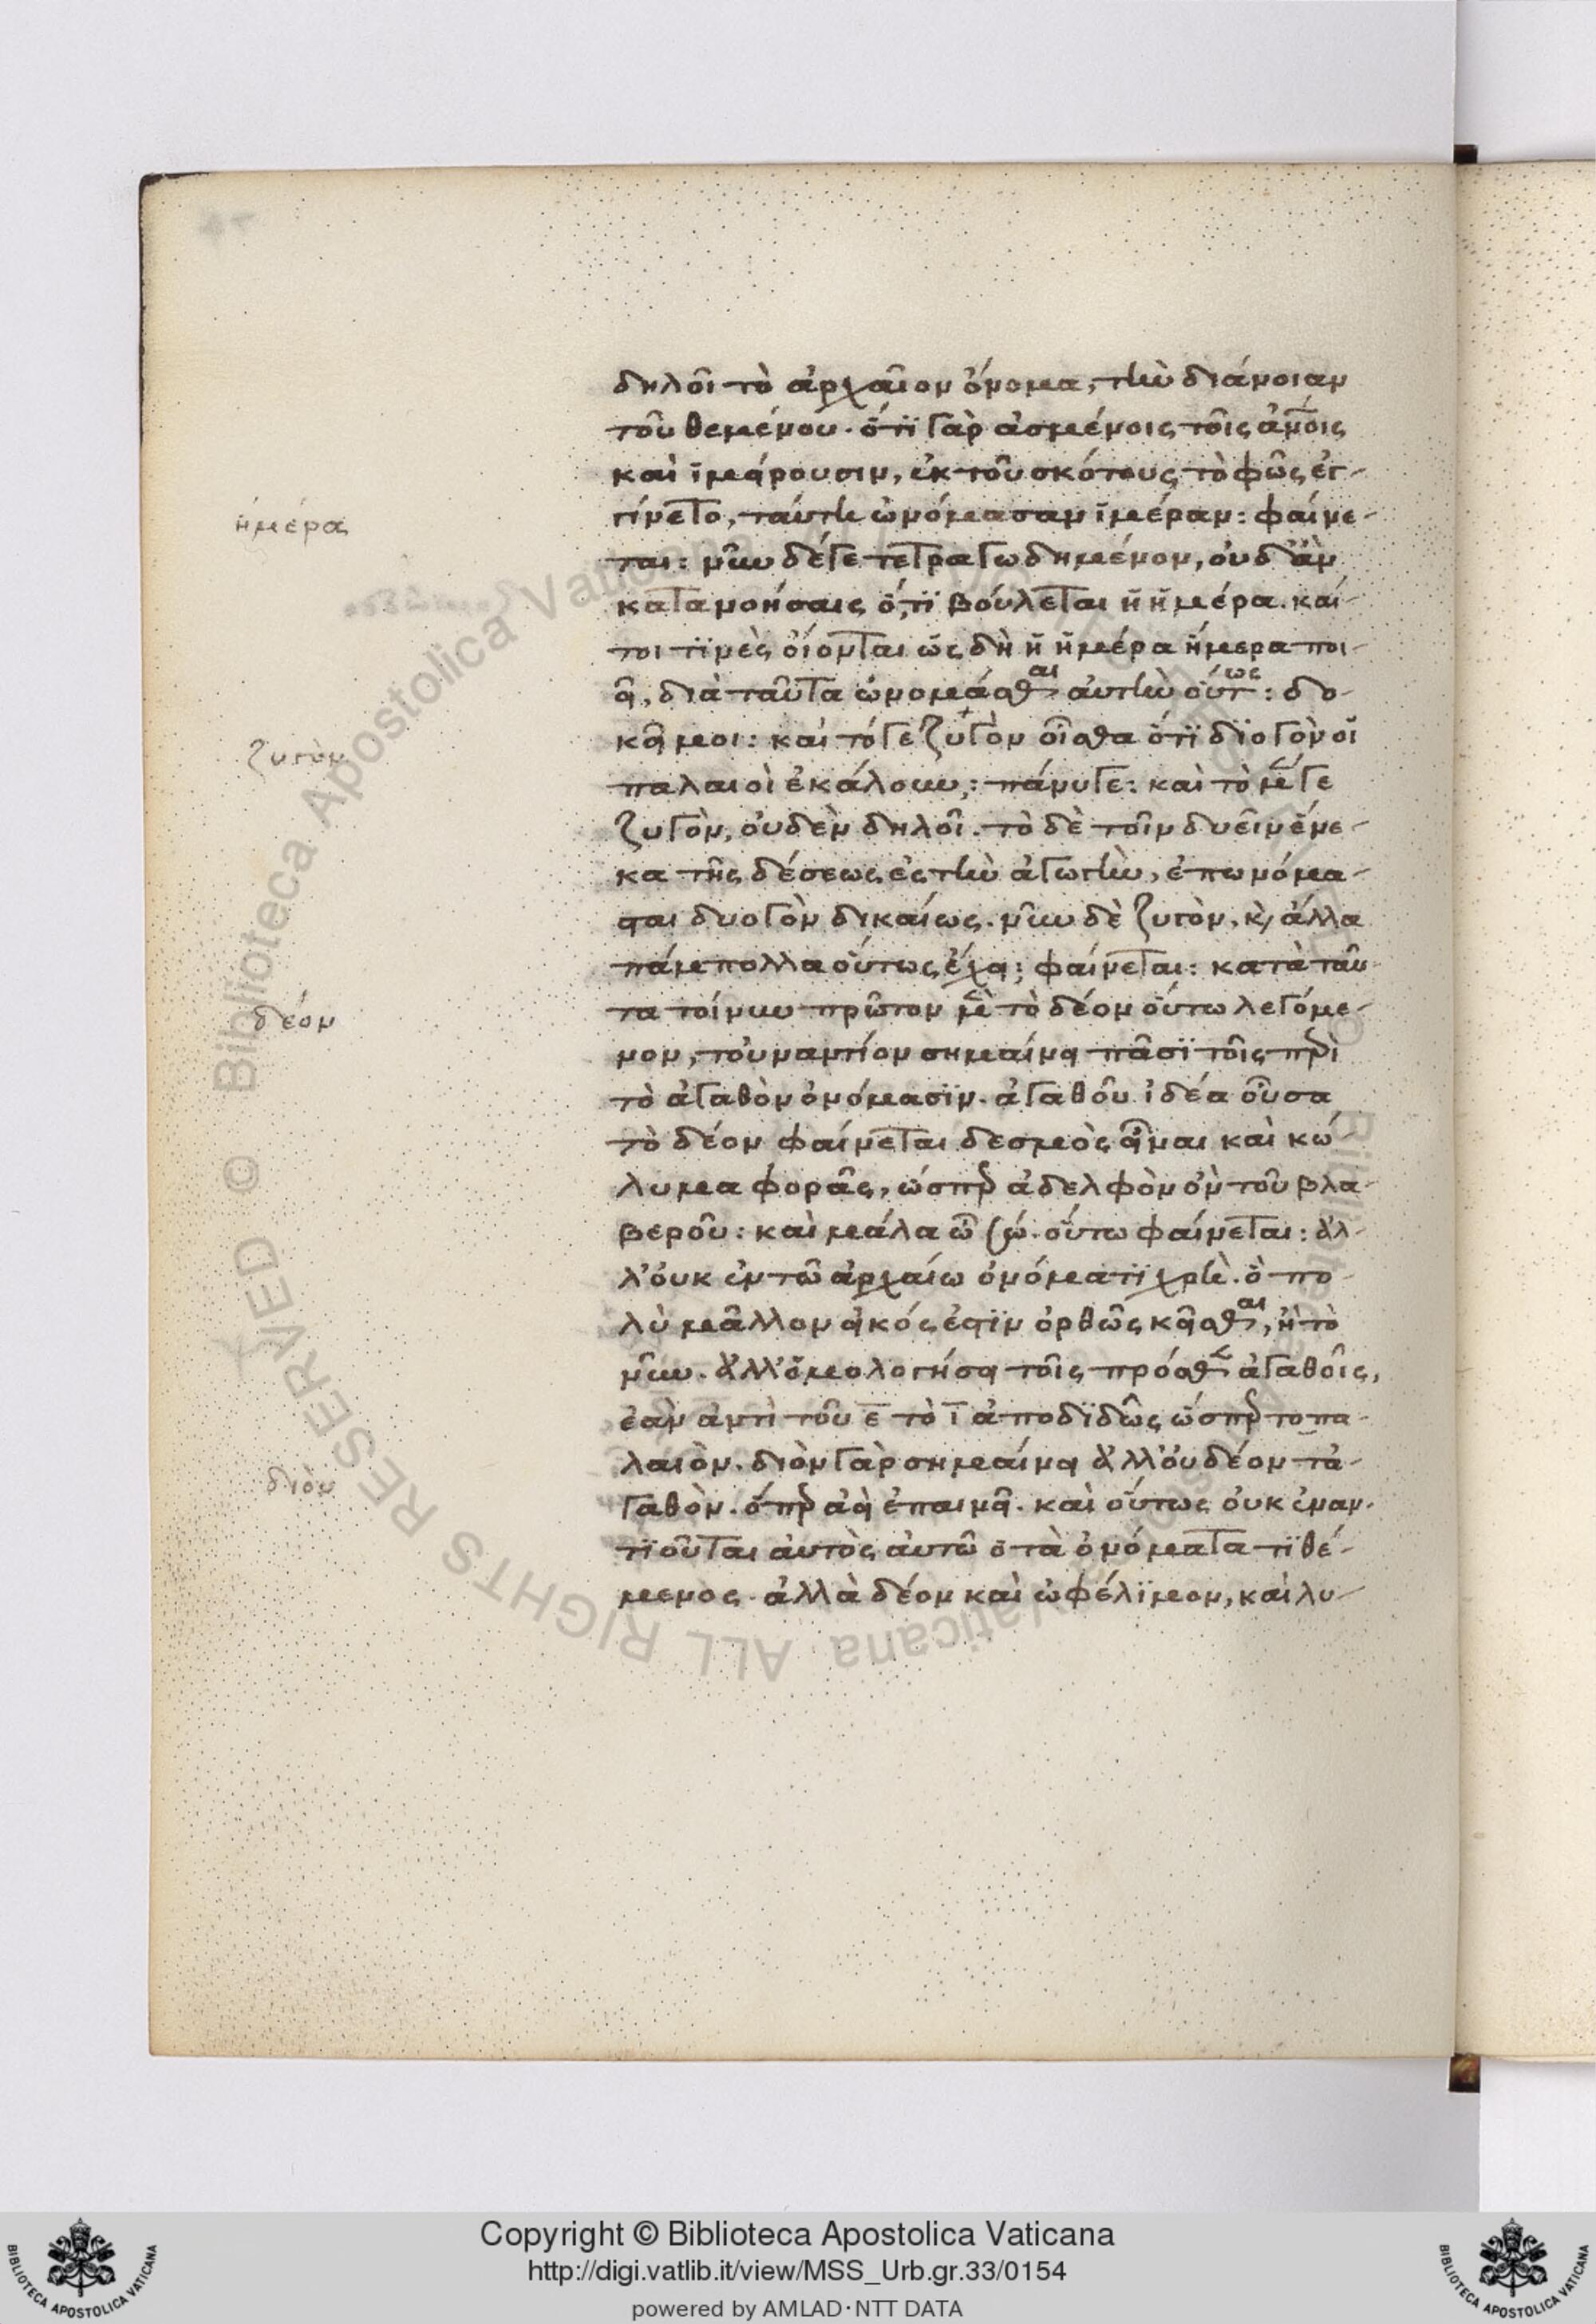 δηλοῖ τὸ ἀρχαῖον ὄνομα, τὴν διάνοιαν
τοῦ θεμένου. ὅτι γὰρ ἀσμένοις τοῖς ἀν̅οις
καὶ ἱμείρουσιν, ἐκ τοῦ σκότους τὸ φῶς ἐγ-
ἡμέρα
γίνετο, ταύτη ὠνόμασαν ἱμέραν: φαίνε-
ται: νῦν δέ γε τετραγωδημένον, οὐδ' ἂν
κατανοήσαις ὅ,τι βούλεται ἡ ἡμέρα. καί-
τοι τινὲς οἴονται ὡς δὴ ἡ ἡμέρα ἥμερα ποι-
εῖ, διὰ ταῦτα ὠνομάσθαι αὐτὴν οὕτως: δο-
ζυγὸν
κεῖ μοι: καὶ τό γε ζυγὸν οἶσθα ὅτι διογὸν οἱ
παλαιοὶ ἐκάλουν: πάνυ γε: καὶ τὸ μέν γε
ζυγὸν, οὐδὲν δηλοῖ. τὸ δὲ τοῖν δυεῖν ἕνε-
κα τῆς δέσεως ἐς τὴν ἀγωγὴν, ἐπωνόμα-
σται δυογὸν δικαίως. νῦν δὲ ζυγὸν. κ, ἄλλα
πάμπολλα οὕτως ἔχει; φαίνεται: κατὰ ταῦ
δέον
τα τοίνυν πρῶτον μὲν τὸ δέον οὕτω λεγόμε-
νον, τοὐναντίον σημαίνει πᾶσι τοῖς περὶ
τὸ ἀγαθὸν ὀνόμασιν. ἀγαθοῦ ἰδέα οὖσα
τὸ δέον φαίνεται δεσμὸς εἶναι καὶ κώ-
λυμα φορᾶς, ὥσπερ ἀδελφὸν ὂν τοῦ βλα-
βεροῦ: καὶ μάλα ὦ σώ. οὕτω φαίνεται: ἀλ-
λ' οὐκ ἐν τῶ ἀρχαίω ὀνόματι χρὴ. ὃ πο-
λὺ μᾶλλον εἰκός ἐστιν ὀρθῶς κεῖσθαι, ἢ τὸ
νῦν. ἀλλ' ὁμολογήσει τοῖς πρόσθεν ἀγαθοῖς,
ἐὰν ἀντὶ τοῦ ε̅ τὸ ι̅ ἀποδιδῶς ὥσπερ το πα-
διὸν
λαιὸν. διὸν γὰρ σημαίνει ἀλλ' οὐ δέον τἀ-
γαθὸν. ὅπερ ἀεὶ ἐπαινεῖ. καὶ οὕτως οὐκ ἐναν-
τιοῦται αὐτὸς αὐτῶ ὁ τὰ ὀνόματα τιθέ-
μενος. ἀλλὰ δέον καὶ ὠφέλιμον, καὶ λυ-
Copyright © Biblioteca Apostolica Vaticana
http://digi.vatlib.it/view/MSS_Urb.gr.33/0154
powered by AMLAD·NTT DATA